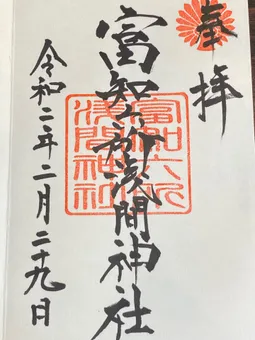 奉拝
富知六所浅間神社
令和二年二月二十九日
富知六所
浅間神社